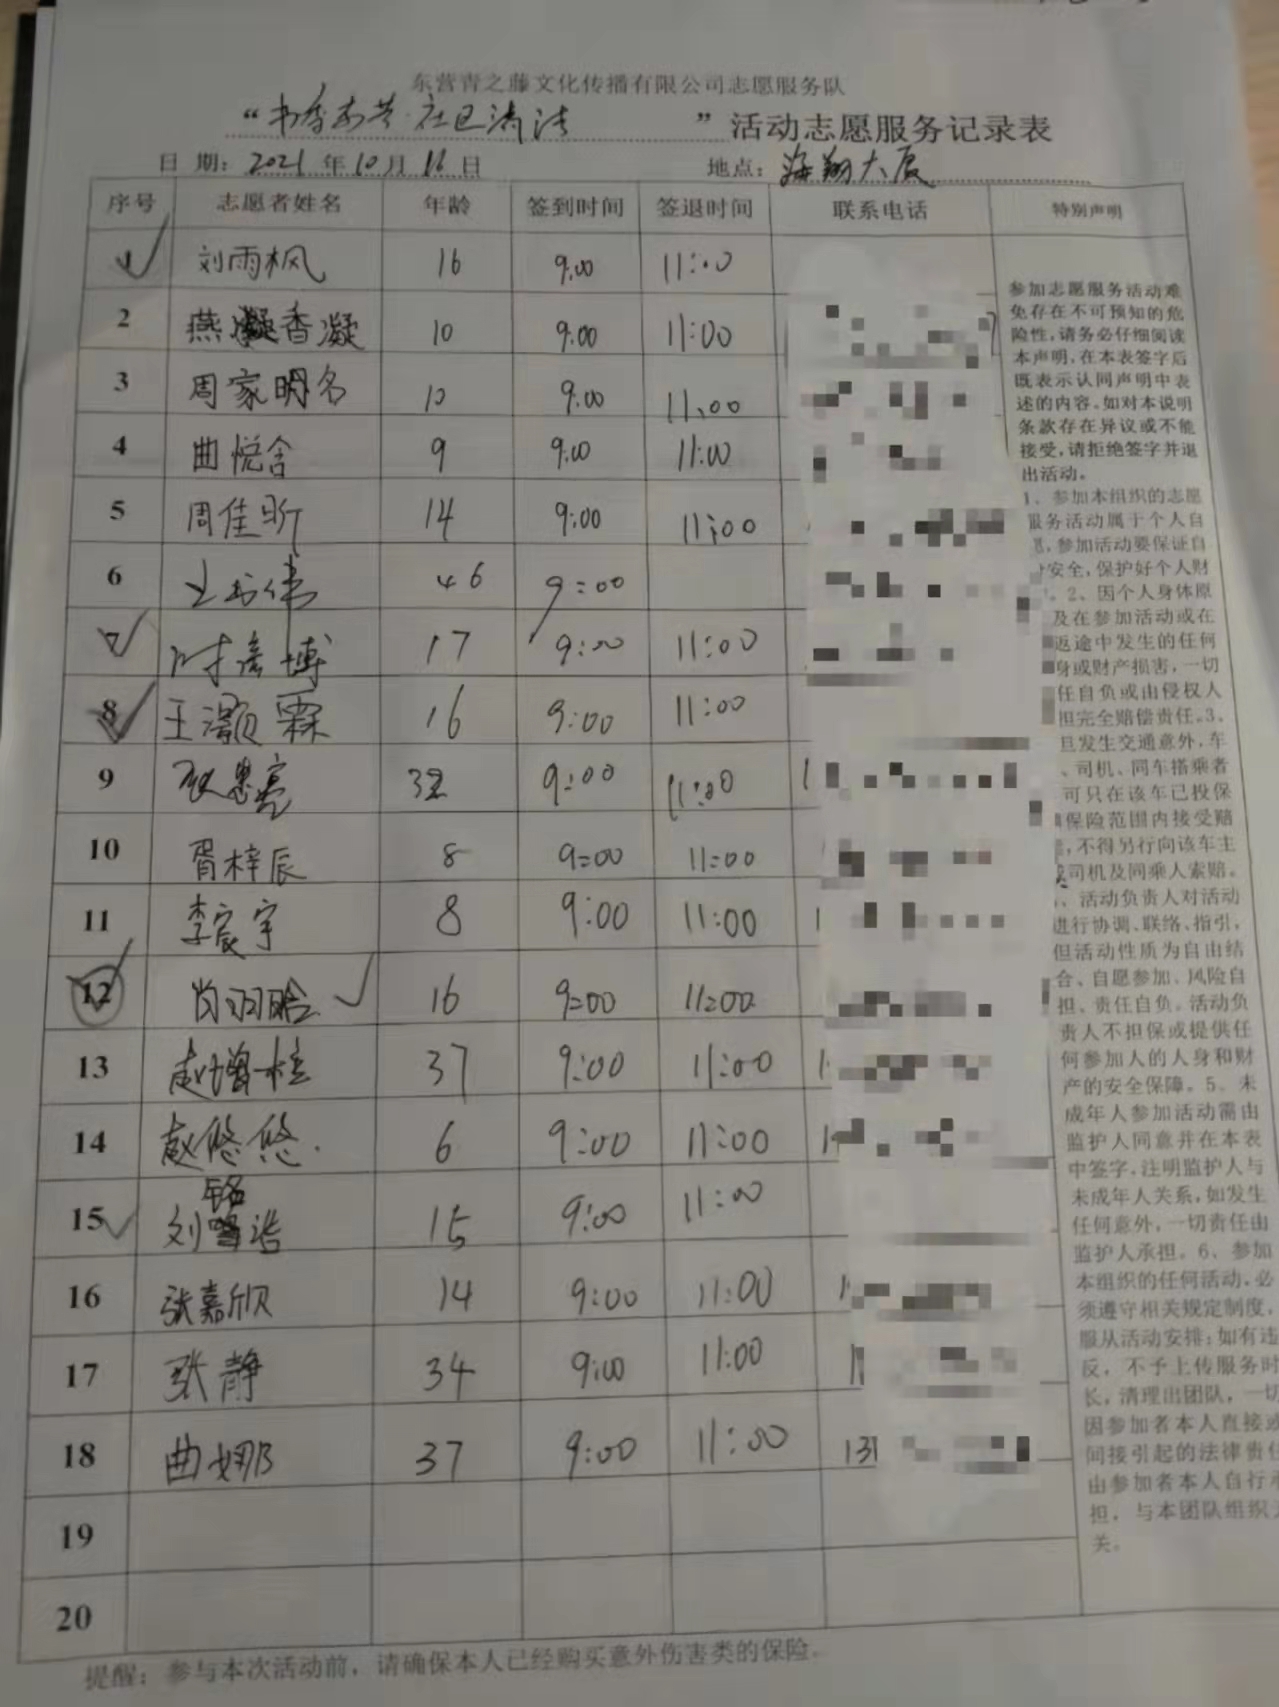 东营青之藤文化传播有限公司志愿服务队
“书香 社区清洁”活动志愿服务记录表
日期：2021年10月16日 地点：海翔大厦
序号 志愿者姓名 年龄 签到时间 签退时间 联系电话 特别声明
1 刘雨枫 16 9:00 11:00
2 燕香凝 10 9:00 11:00
3 周家名 10 9:00 11:00
4 曲悦含 9 9:00 11:00
5 周佳昕 14 9:00 11:00
6 46 9:00
7 博 17 9:00 11:00
8 王灏霖 16 9:00 11:00
9 32 9:00 11:00
10 胥梓辰 8 9:00 11:00
11 李宸宇 8 9:00 11:00
12 肖羽晗 16 9:00 11:00
13 赵增桂 37 9:00 11:00
14 赵悠悠 6 9:00 11:00
15 刘铭浩 15 9:00 11:00
16 张嘉欣 14 9:00 11:00
17 张静 34 9:00 11:00
18 曲娜 37 9:00 11:00 131
19
20
参加志愿服务活动难
免存在不可预知的危
险性，请务必仔细阅读
本声明，在本表签字后
既表示认同声明中表
述的内容。如对本说明
条款存在异议或不能
接受，请拒绝签字并退
出活动。
1、参加本组织的志愿
服务活动属于个人自
，参加活动要保证自
安全，保护好个人财
。2、因个人身体原
及在参加活动或在
返途中发生的任何
身或财产损害，一切
任自负或由侵权人
担完全赔偿责任。3、
旦发生交通意外，车
、司机、同车搭乘者
可只在该车已投保
保险范围内接受赔
，不得另行向该车主
司机及同乘人索赔。
、活动负责人对活动
进行协调、联络、指引，
但活动性质为自由结
合、自愿参加、风险自
担、责任自负。活动负
责人不担保或提供任
何参加人的人身和财
产的安全保障。5、未
成年人参加活动需由
监护人同意并在本表
中签字，注明监护人与
未成年人关系，如发生
任何意外，一切责任由
监护人承担。6、参加
本组织的任何活动，必
须遵守相关规定制度，
服从活动安排；如有违
反，不予上传服务时
长，清理出团队，一切
因参加者本人直接或
间接引起的法律责任
由参加者本人自行承
担，与本团队组织无
关。
提醒：参与本次活动前，请确保本人已经购买意外伤害类的保险。